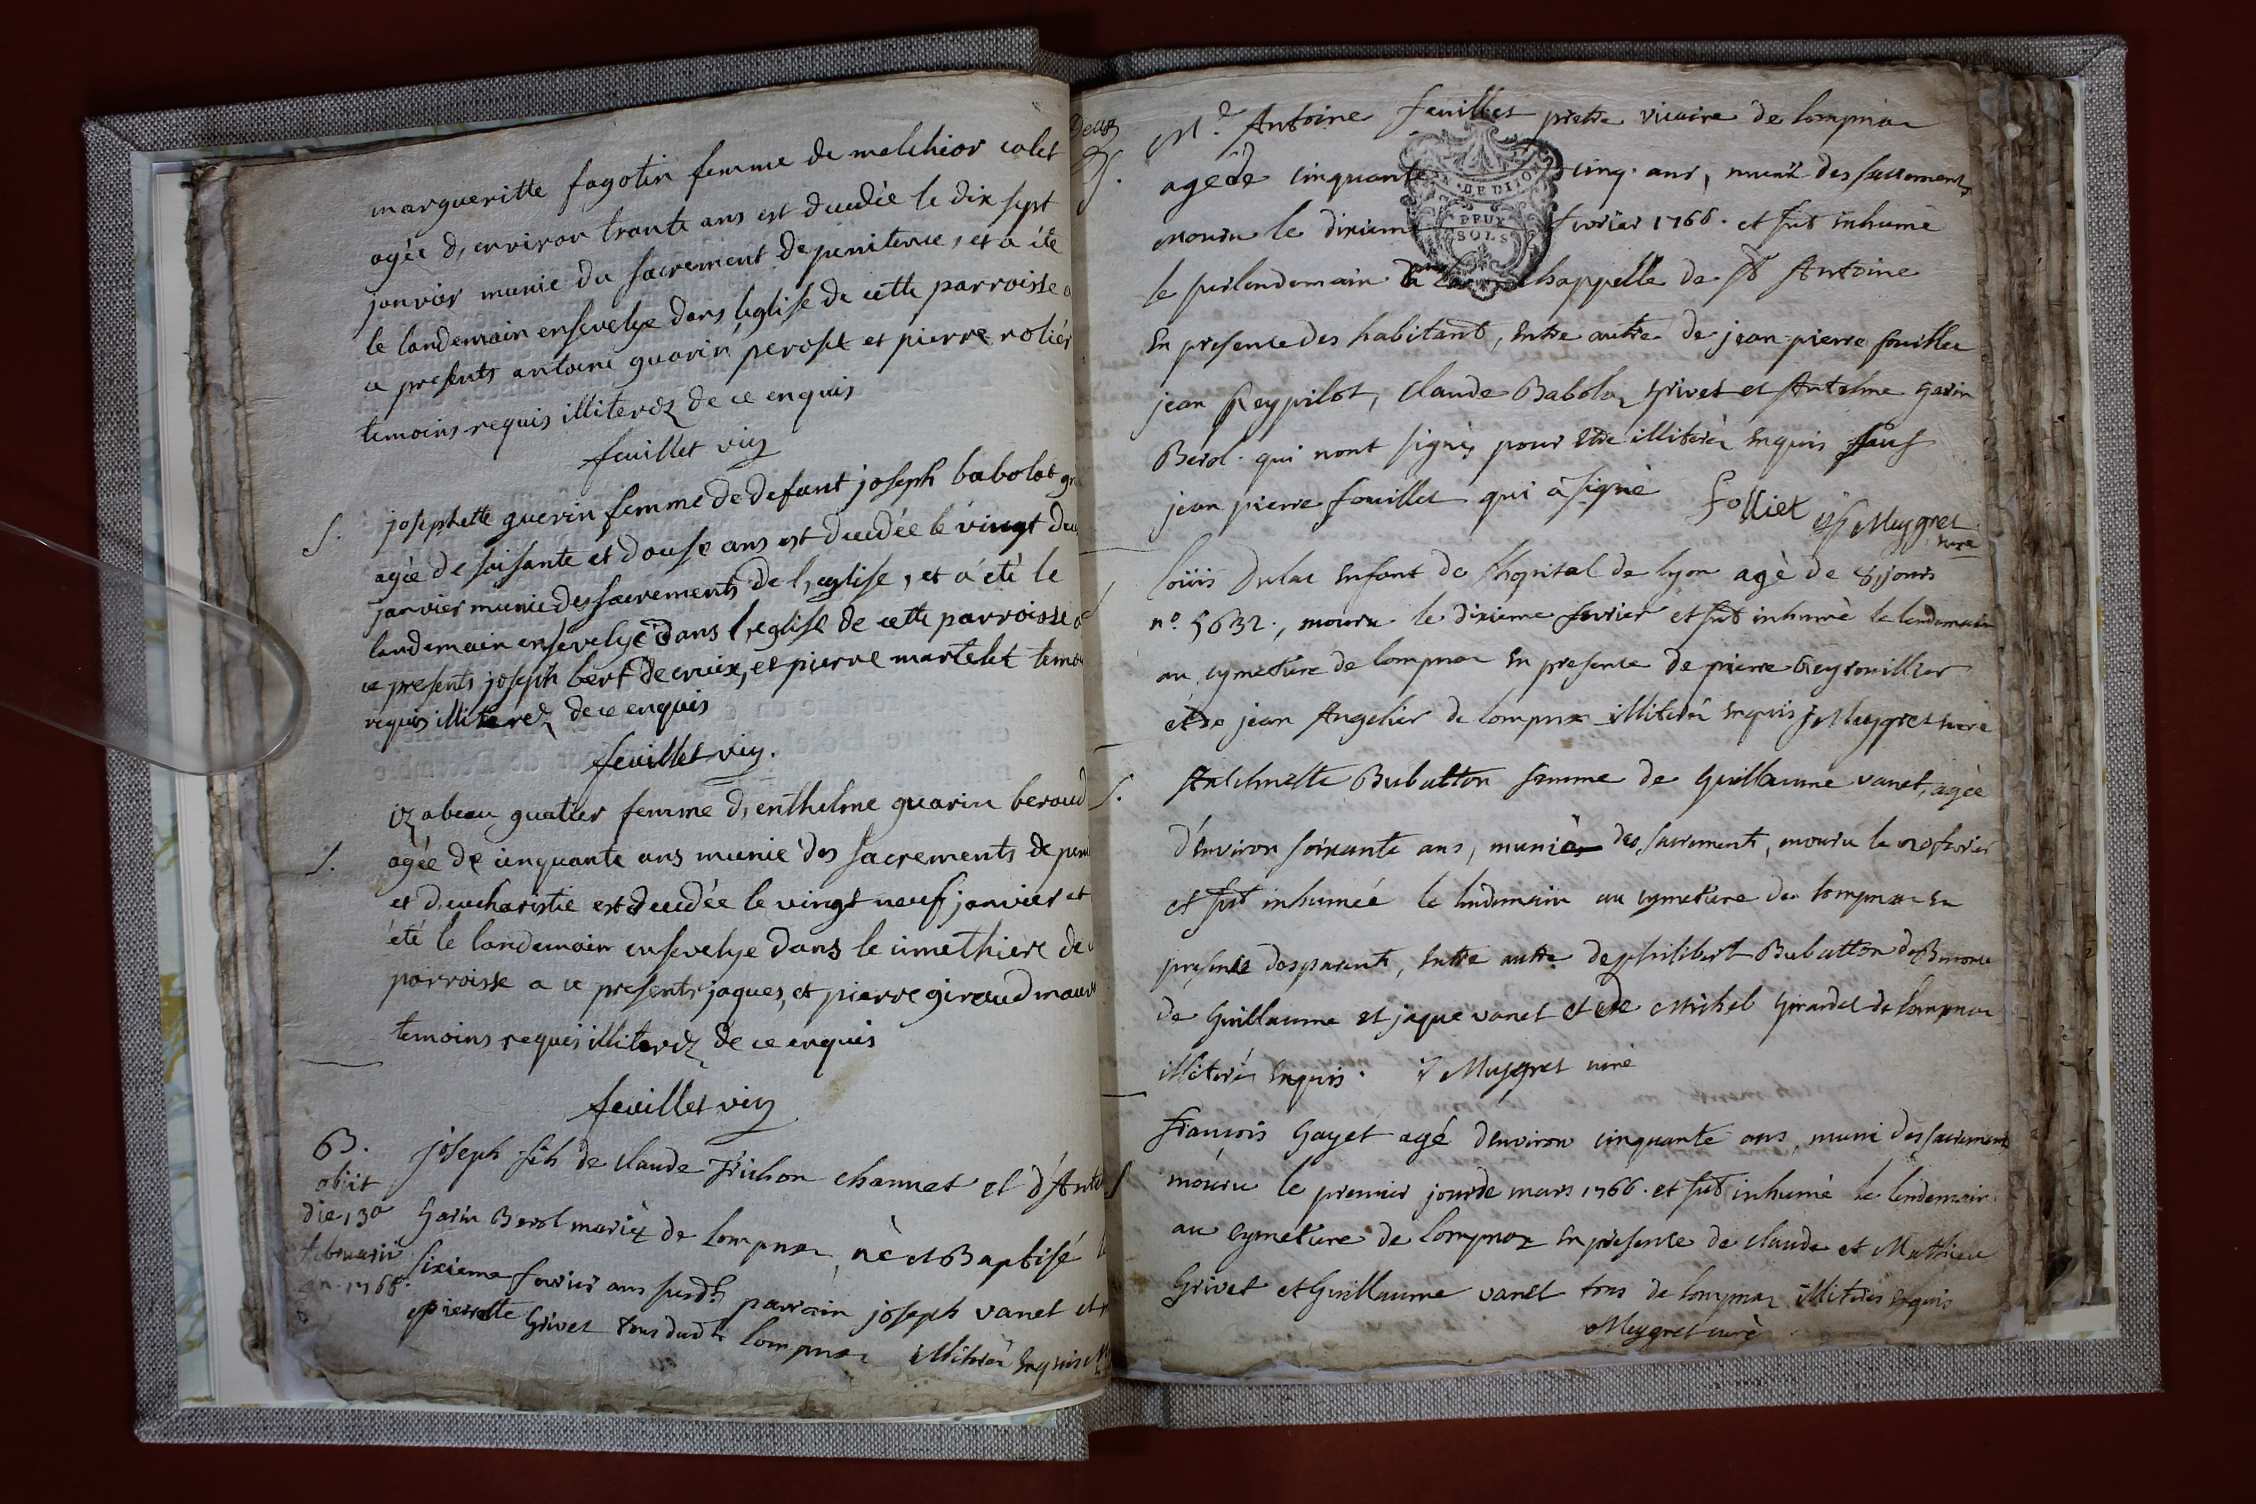 margueritte fagotin femme de melchior colet
agée d, environ trante ans est decedée le dix sept
janvier munie du sacrement de penitence, et a éte
le landemain ensevelye dans leglise de cette parroisse a
ce presents antoine guarin peroset et pierre
temoins requis illiterez de ce enquis
feuillet vic
S.
josephette guerin femme de defunt joseph babolat
agée de soisante et douse ans est decedée le vingt deu
janvier munie des sacrements de l, eglise, et a été le
landemain ensevelye dans l, eglise de cette parroisse a
ce presents joseph bert decroix, et pierre martelet temo
requis illiterez de ce enquis
feuillet vic.
S.
izabeau guatier femme d, enthelme guarin beroud
agée de cinquante ans munie des sacrements de peni
et d, eucharistie est decedée le vingt neuf janvier et
été le landemain ensevelye dans le cimethiere de
parroisse a ce presents jaques, et pierre giraud
temoins requis illiterez de ce enquis
feuillet vic
B.
obiit
die 13a
februarii
an. 1766.
joseph fils de claude Trichon channet et d'Ante
Garin Berol mariéz de lompnaz, né et Baptisé
sixieme fevrier ans susdt. parrain joseph vanet et
pierrette Grivet tous dudt. lompnaz illiterés enquis
Deux
S.
Mr. Antoine feuillet pretre vicaire de lompnaz
agé de cinquante cinq. ans, muni des sacements
mouru le dixieme fevrier 1766. et fut inhumé
le surlendemain dans la chappelle de St Antoine
En presence des habitant, entre autre de jean-pierre fouillet
jean Reypilot, claude Babolaz Grivet et Antelme Garin
Berol. qui nont signés pour etre illiteré enquis sauf
jean pierre fouillet qui à signé folliet Meygret
curé
DE DIJON
DEUX
SOLS
loüis Dulac enfant de lhopital de lyon agé de 8 jours
no. 5632., mouru le dixieme fevrier et fut inhumé le lendemain
au cymetiere de lompnaz en presence de pierre Reyrouillier
et de jean Angelier de lompnaz illiteré enquis Meygret curé
S.
Antelmette Bubatton femme de Guillaume vanet, agée
d'environ soixante ans, munie des sacrements, mouru le 20 fevrier
et fut inhumée le lendemain au cymetiere de lompnaz en
presence des parents, entre autre de philibert Bubatton de
de Guillaume et jaque vanet et de Michel Girardet de lompnaz
illiteré enquis. Meygret curé
S
François Gayet agé d'environ cinquante ans, muni des sacrement
mouru le premier jour de mars 1766. et fut inhumé le lendemain
au cymetiere de lompnaz en presence de claude et Mathieu
Grivet et Guillaume vanet tous de lompnaz illiterés enquis
Meygret curé